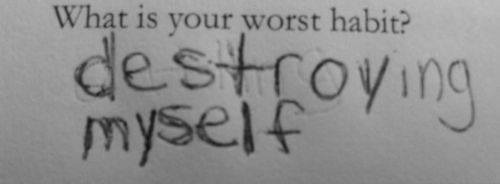 What is your worst habit?
destroying
myself